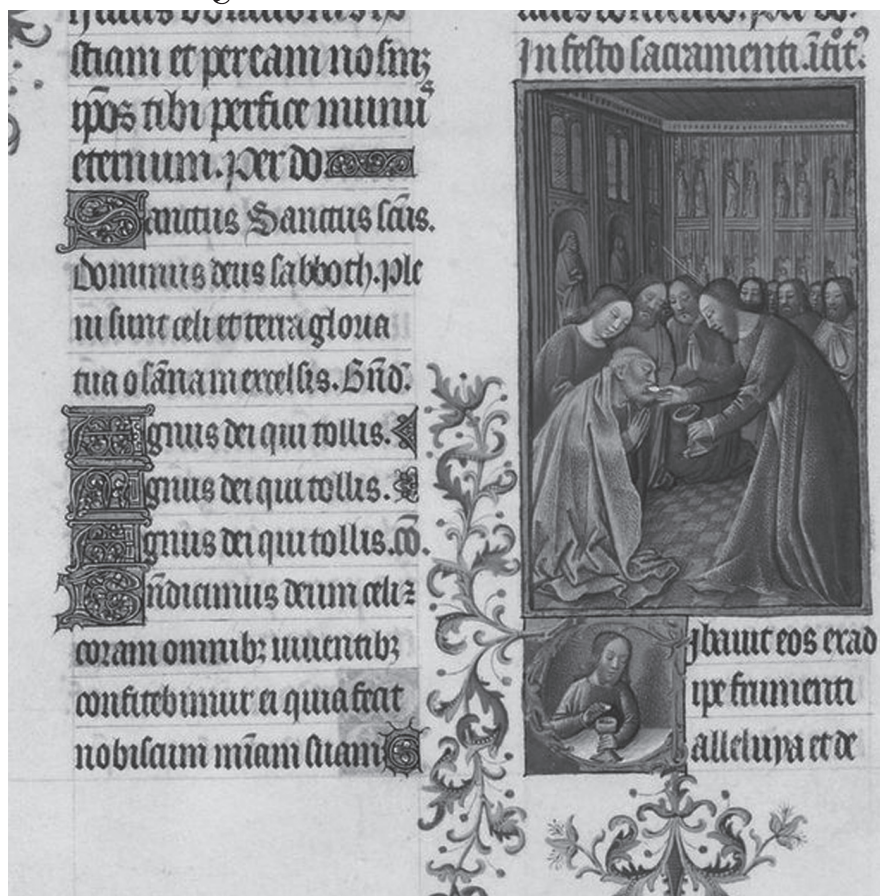 sticam et per eam nosmz
ipos tibi perfice munu9
eternum. Per do
Sanctus Sanctus scūs.
Dominus deus sabboth. ple
ni sunt celi et terra gloria
tua osāna in excelsis. Bn̄d.
Agnus dei qui tollis.
Agnus dei qui tollis.
Agnus dei qui tollis. cō.
Bn̄dicimus deum celi z
coram omnibꝫ uiuentibꝫ
confitebimur ei quia fecit
nobiscum mīam suam
In festo sacramenti. itoit.
Cibauit eos ex ad
ipe frumenti
alleluya et de